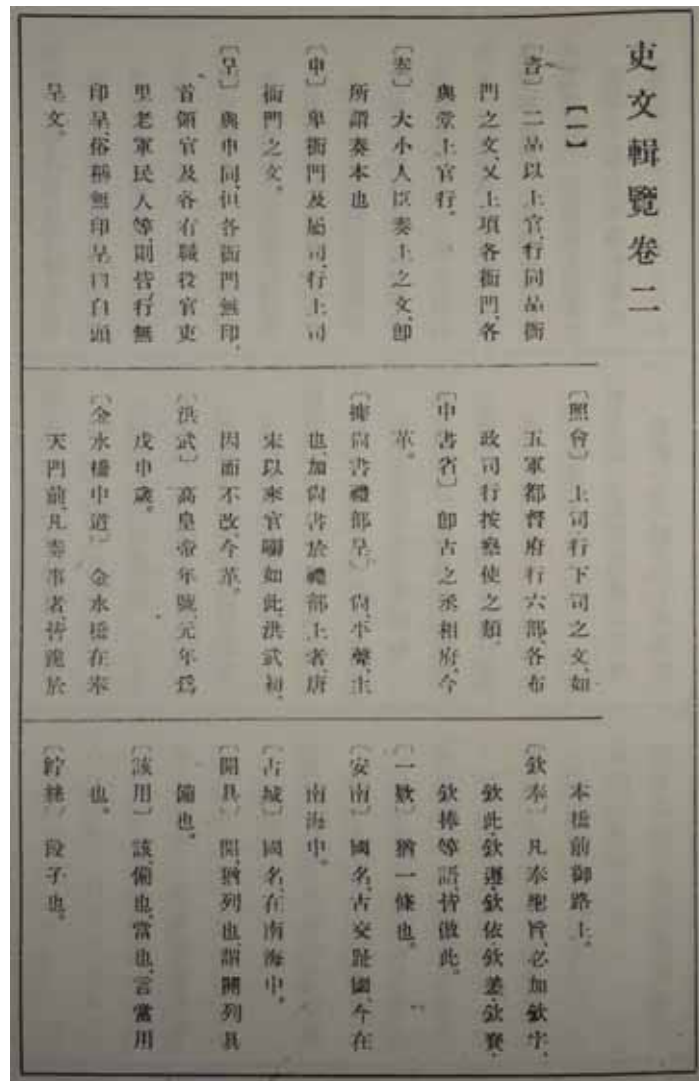 吏文輯覽卷二
【一】
〔咨〕 二品以上官、行同品衙
門之文、又上項各衙門、各
與堂上官行、
〔奏〕 大小人臣奏上之文、卽
所謂奏本也
〔申〕 卑衙門及屬司、行上司
衙門之文。
〔呈〕 與申同、但各衙門無印、
首領官及各有職役官吏
里老軍民人等、則皆行無
印呈、俗稱無印呈曰白頭
呈文。
〔照會〕 上司行下司之文、如
五軍都督府行六部、各布
政司行按察使之類、
〔中書省〕 卽古之丞相府、今
革。
〔據尙書禮部呈〕 尙、平聲、主
也、加尙書於禮部上者、唐
宋以來官啣如此、洪武初、
因而不改、今革。
〔洪武〕 高皇帝年號、元年爲
戊申歲。
〔金水橋中道〕 金水橋在奉
天門前、凡奏事者、皆跪於
本橋前御路上。
〔欽奉〕 凡奉聖旨、必加欽字、
欽此、欽遵、欽依、欽差、欽賚、
欽捧等語、皆倣此。
〔一款〕 猶一條也。
〔安南〕 國名、古交趾國、今在
南海中。
〔占城〕 國名、在南海中。
〔開具〕 開、猶列也、謂開列具
備也。
〔該用〕 該、備也、當也、言當用
也。
〔紵絲〕 段子也。